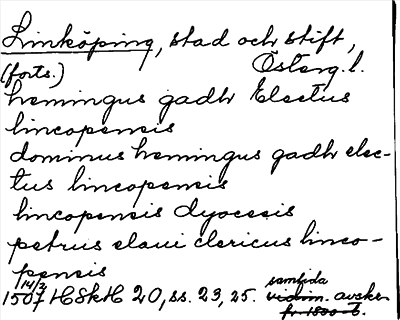 Linköping, stad och stift,
(forts.) Österg. l.
hemingus gadh Electus
lincopensis
dominus hemingus gadh elec-
tus lincopensis
lincopensis dyocesis
petrus elaui clericus linco-
pensis
14/2 samtida
1507 HSkH 20, ss. 23, 25. vidim. avskr.
fr. 1500-t.